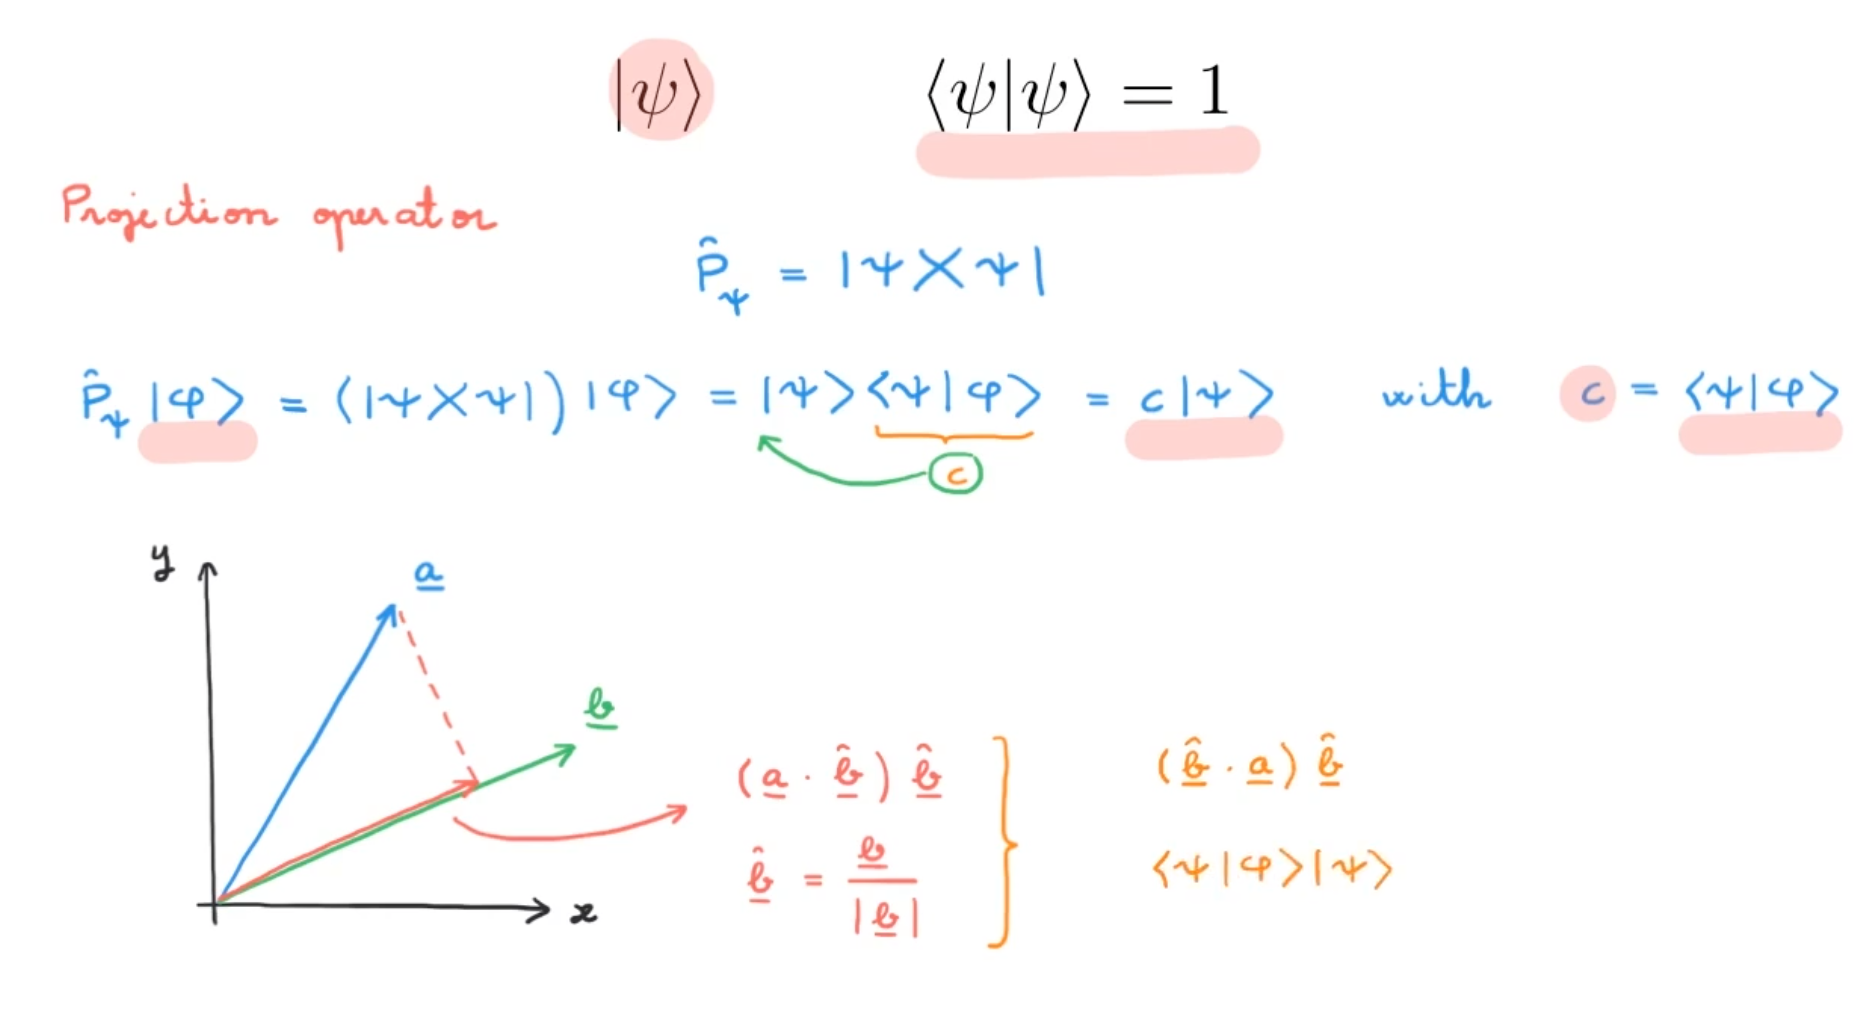 |ψ⟩ ⟨ψ|ψ⟩ = 1
Projection operator
P̂_ψ = |ψ⟩⟨ψ|
P̂_ψ |φ⟩ = (|ψ⟩⟨ψ|) |φ⟩ = |ψ⟩⟨ψ|φ⟩ = c|ψ⟩ with c = ⟨ψ|φ⟩
c
y
a
b
(a · b̂) b̂
(b̂ · a) b̂
b̂ = b / |b|
⟨ψ|φ⟩|ψ⟩
x